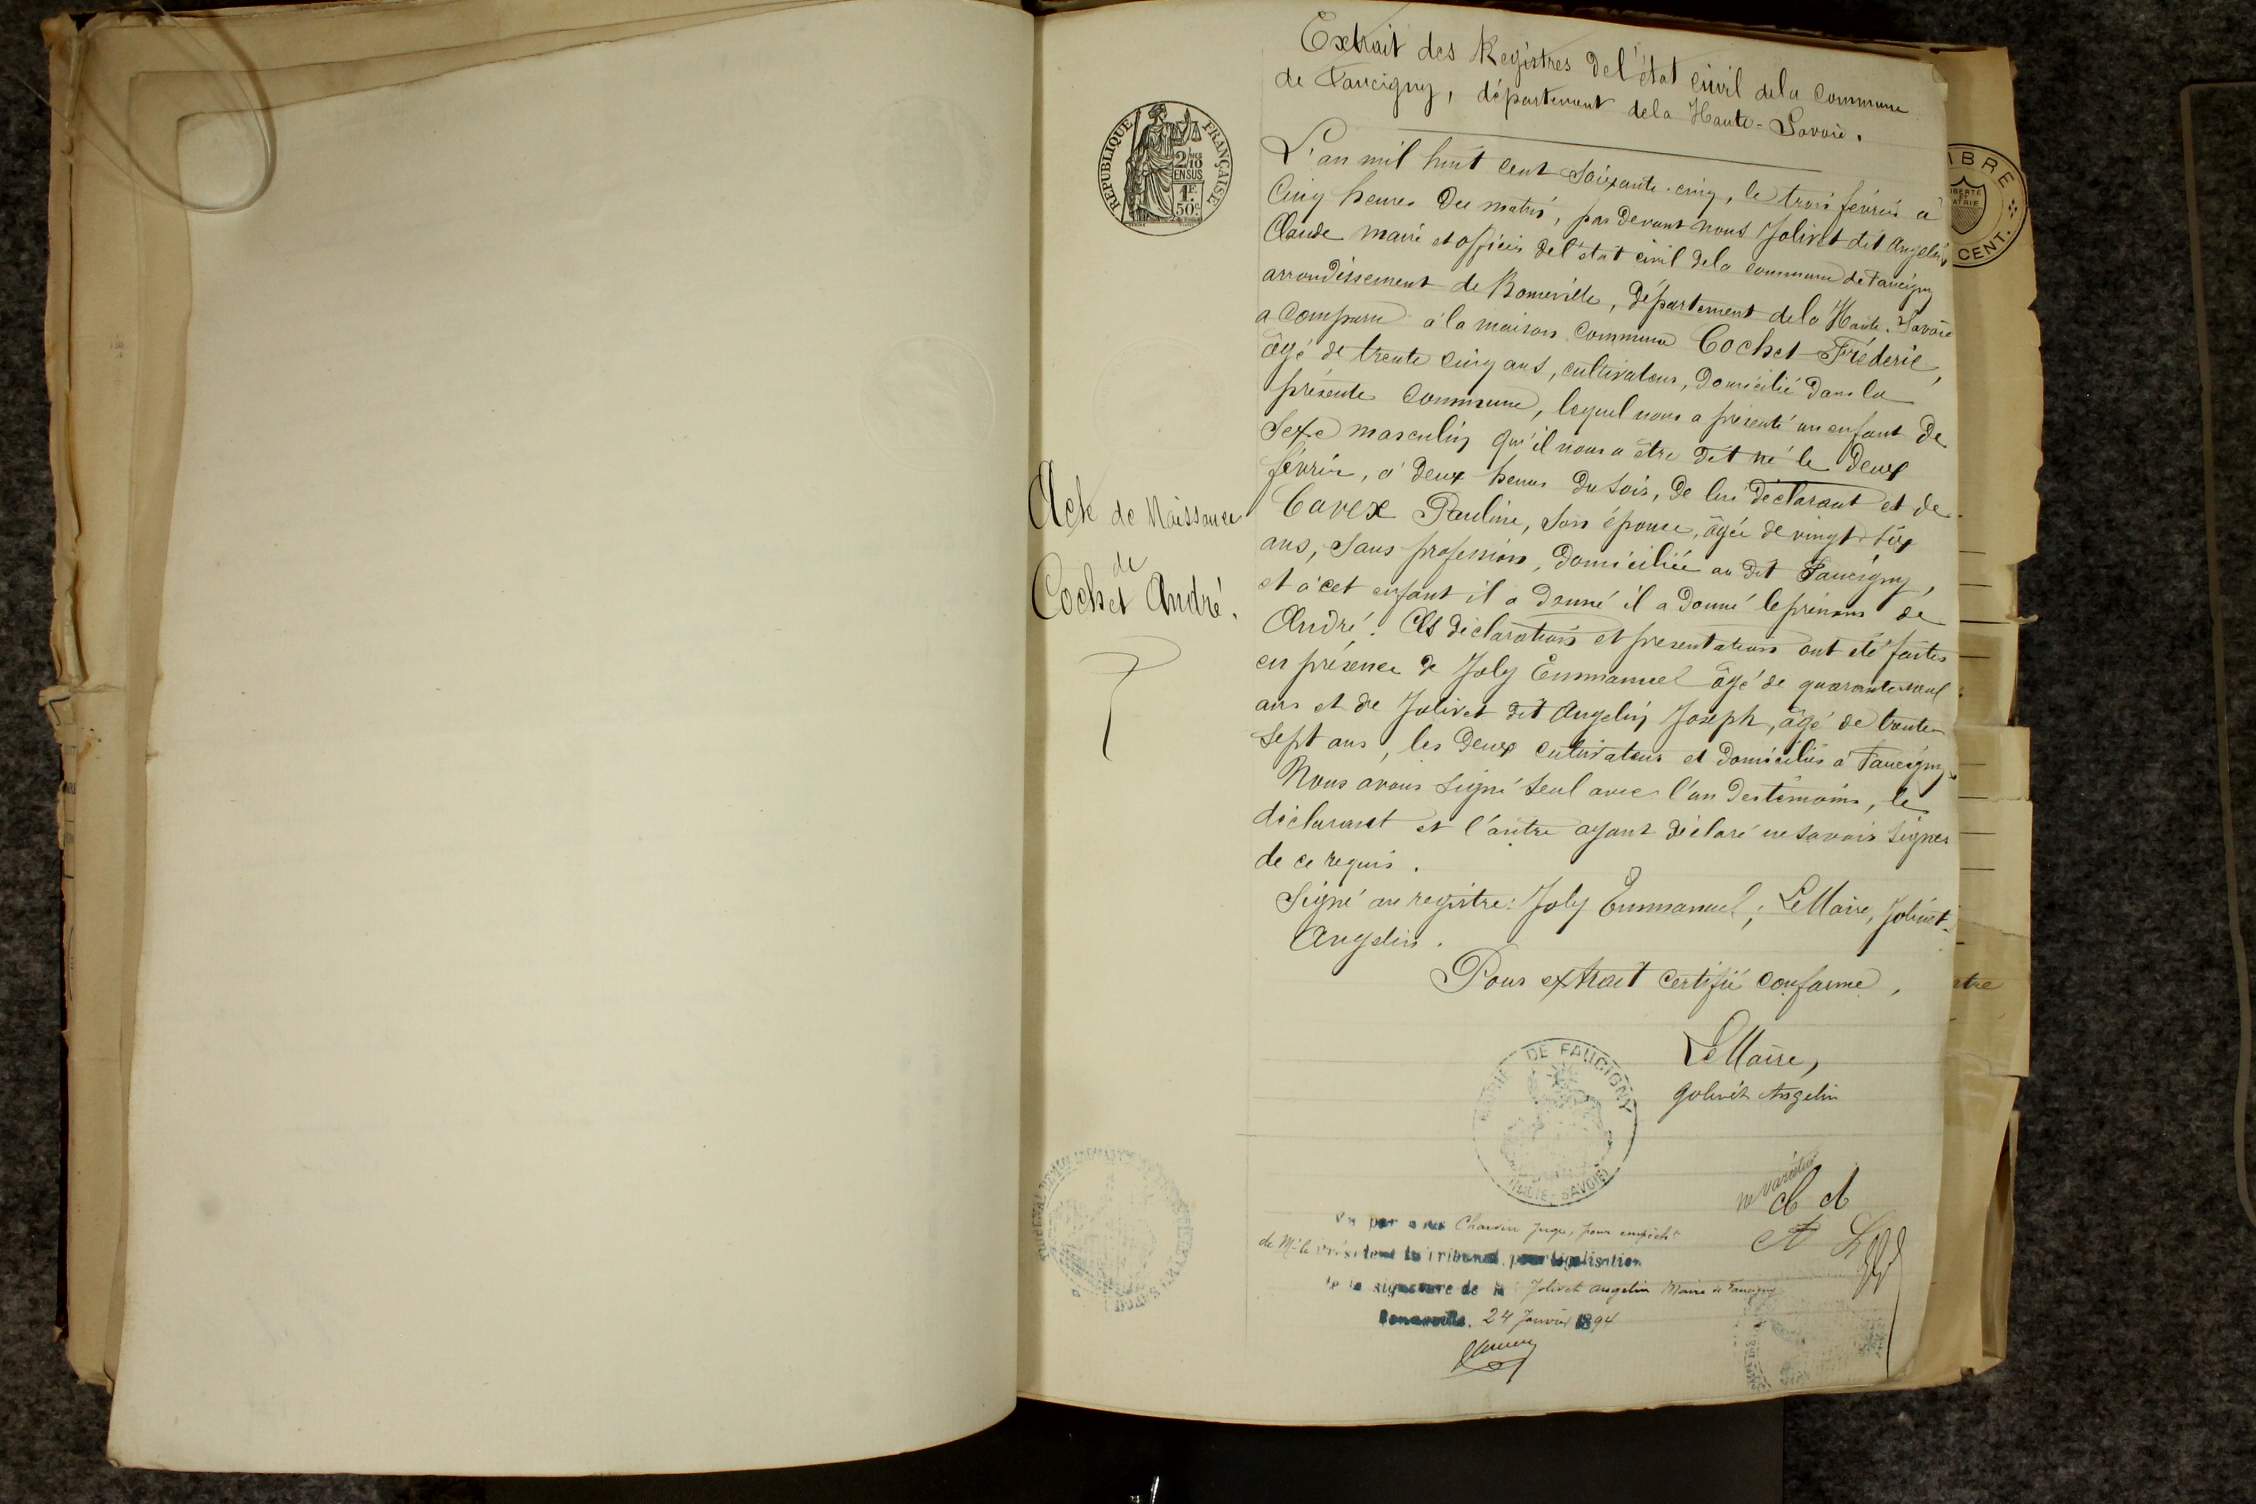 Extrait des Registres de l'état civil de la Commune
de Faucigny, département de la Haute-Savoie.
RÉPUBLIQUE FRANÇAISE
2/10
EN SUS
1F.
50c.
L'an mil huit cent soixante-cinq, le trois février à
Cinq heures du matin, par devant nous Jolivet dit Angelin
Claude maire et officier de l'état civil de la commune de Faucigny
arrondissement de Bonneville, département de la Haute-Savoie
a comparu à la maison commune Cochet Fréderic,
âgé de trente cinq ans, cultivateur, domicilié dans la
présente commune, lequel nous a présenté un enfant de
sexe masculin qu'il nous a être dit né le deux
février, à deux heures du soir, de lui déclarant et de
Cavex Pauline, son épouse, âgée de vingt six
ans, sans profession, domiciliée au dit Faucigny,
et à cet enfant il a donné il a donné le prénom de
André. Ces déclarations et présentations ont été faites
en présence de Joly Emmanuel âgé de quarante neuf
ans et de Jolivet dit Angelin Joseph, âgé de trente
sept ans, les deux cultivateurs et domiciliés à Faucigny.
Nous avons signé seul avec l'un des témoins, le
déclarant et l'autre ayant déclaré ne savoir signer
de ce requis.
Signé au registre: Joly Emmanuel; Le Maire, Jolivet-
Angelin.
Pour extrait certifié conforme,
Le Maire,
Jolivet Angelin
Acte de Naissance
de
Cochet André.
MAIRIE DE FAUCIGNY
(HAUTE-SAVOIE)
ne varietur
Vu par nous Chauvin Juge, pour empêcht
de Mr le Président du Tribunal, pour légalisation
de la signature de M Jolivet Angelin Maire de Faucigny
Bonneville, 24 Janvier 1894
IBRE
LIBERTÉ
ET
PATRIE
CENT.